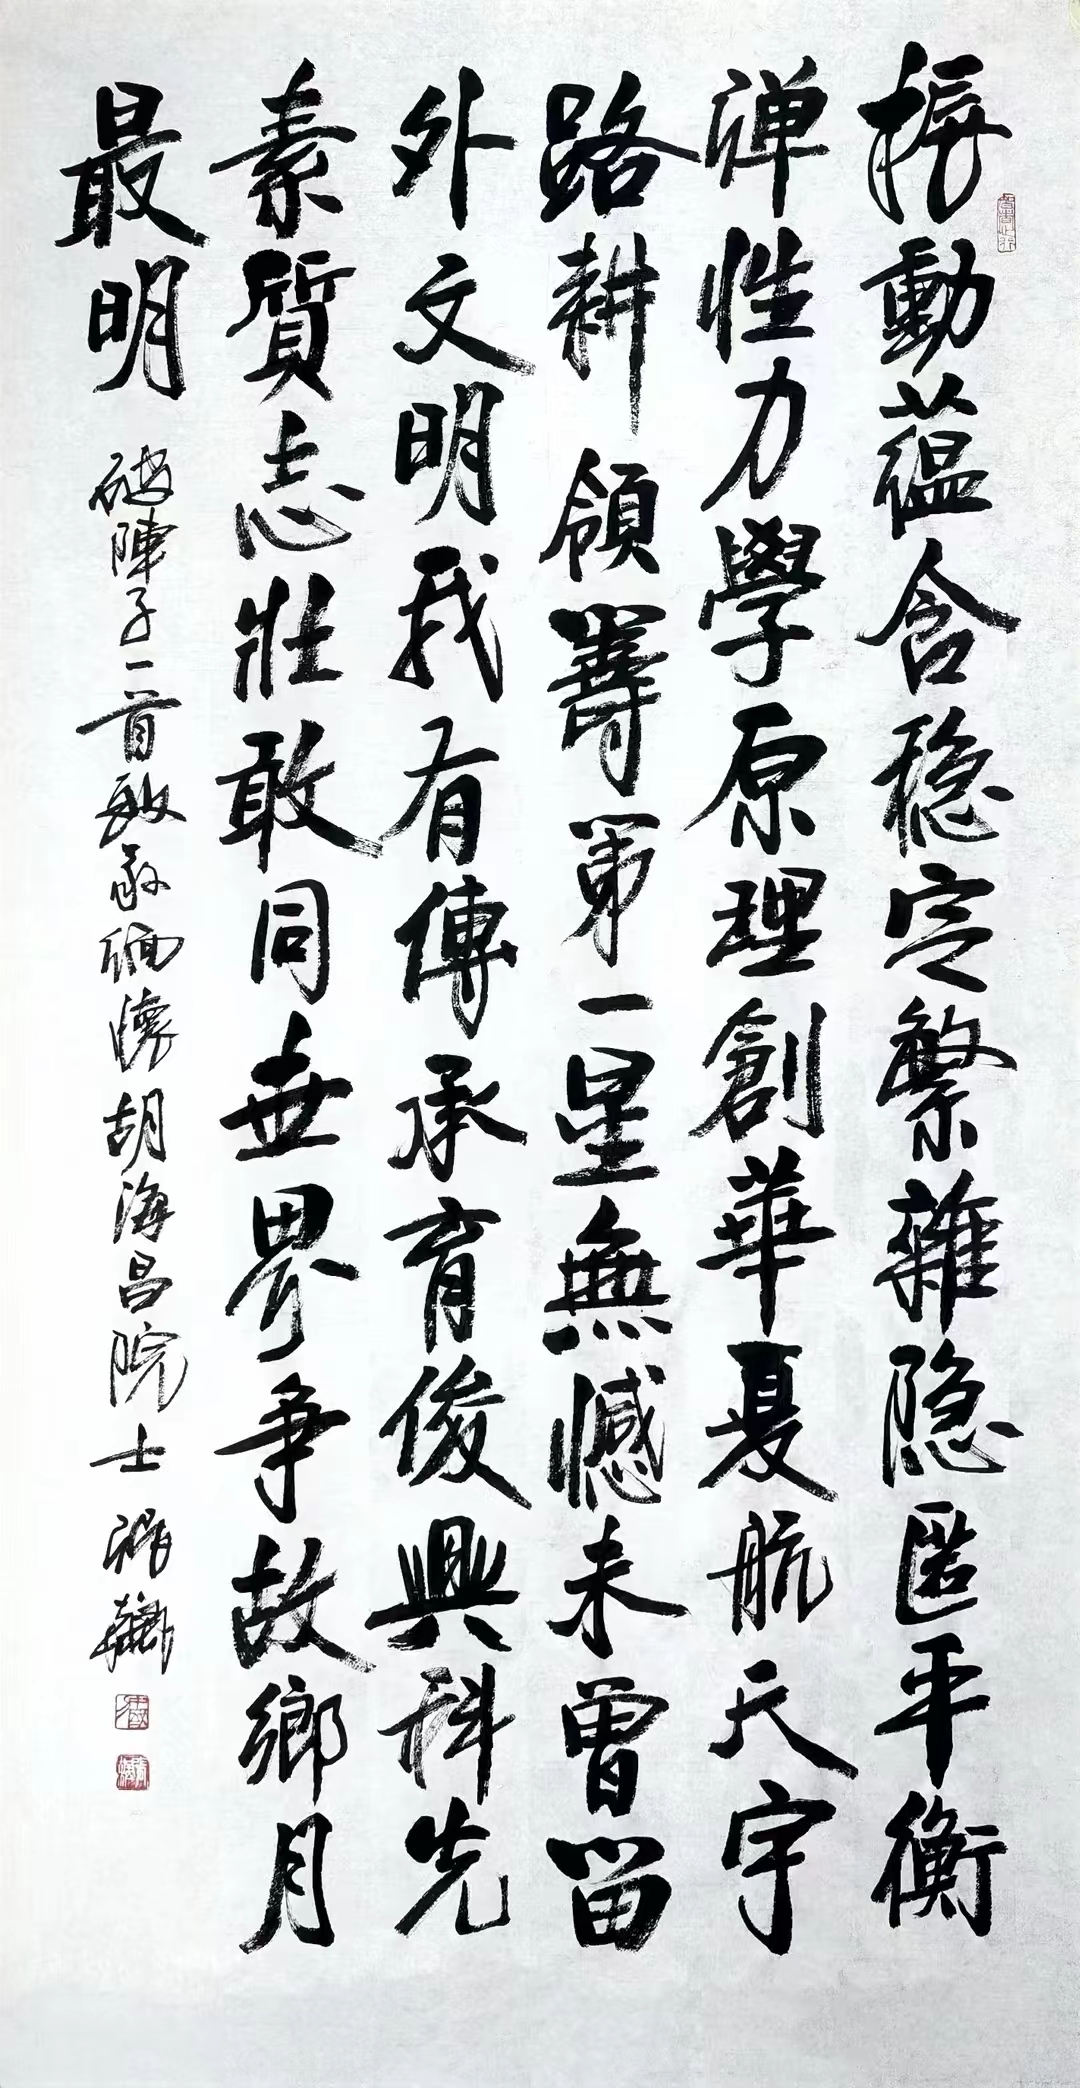 振動蕴含穏定繁雜隐匿平衡
弹性力學原理創華夏航天宇
路耕領籌第一星無憾未曾留
外文明我有傳承育俊興科先
素質志壯敢同世界争故鄉月
最明
破陣子一首敬缅懷胡海昌院士